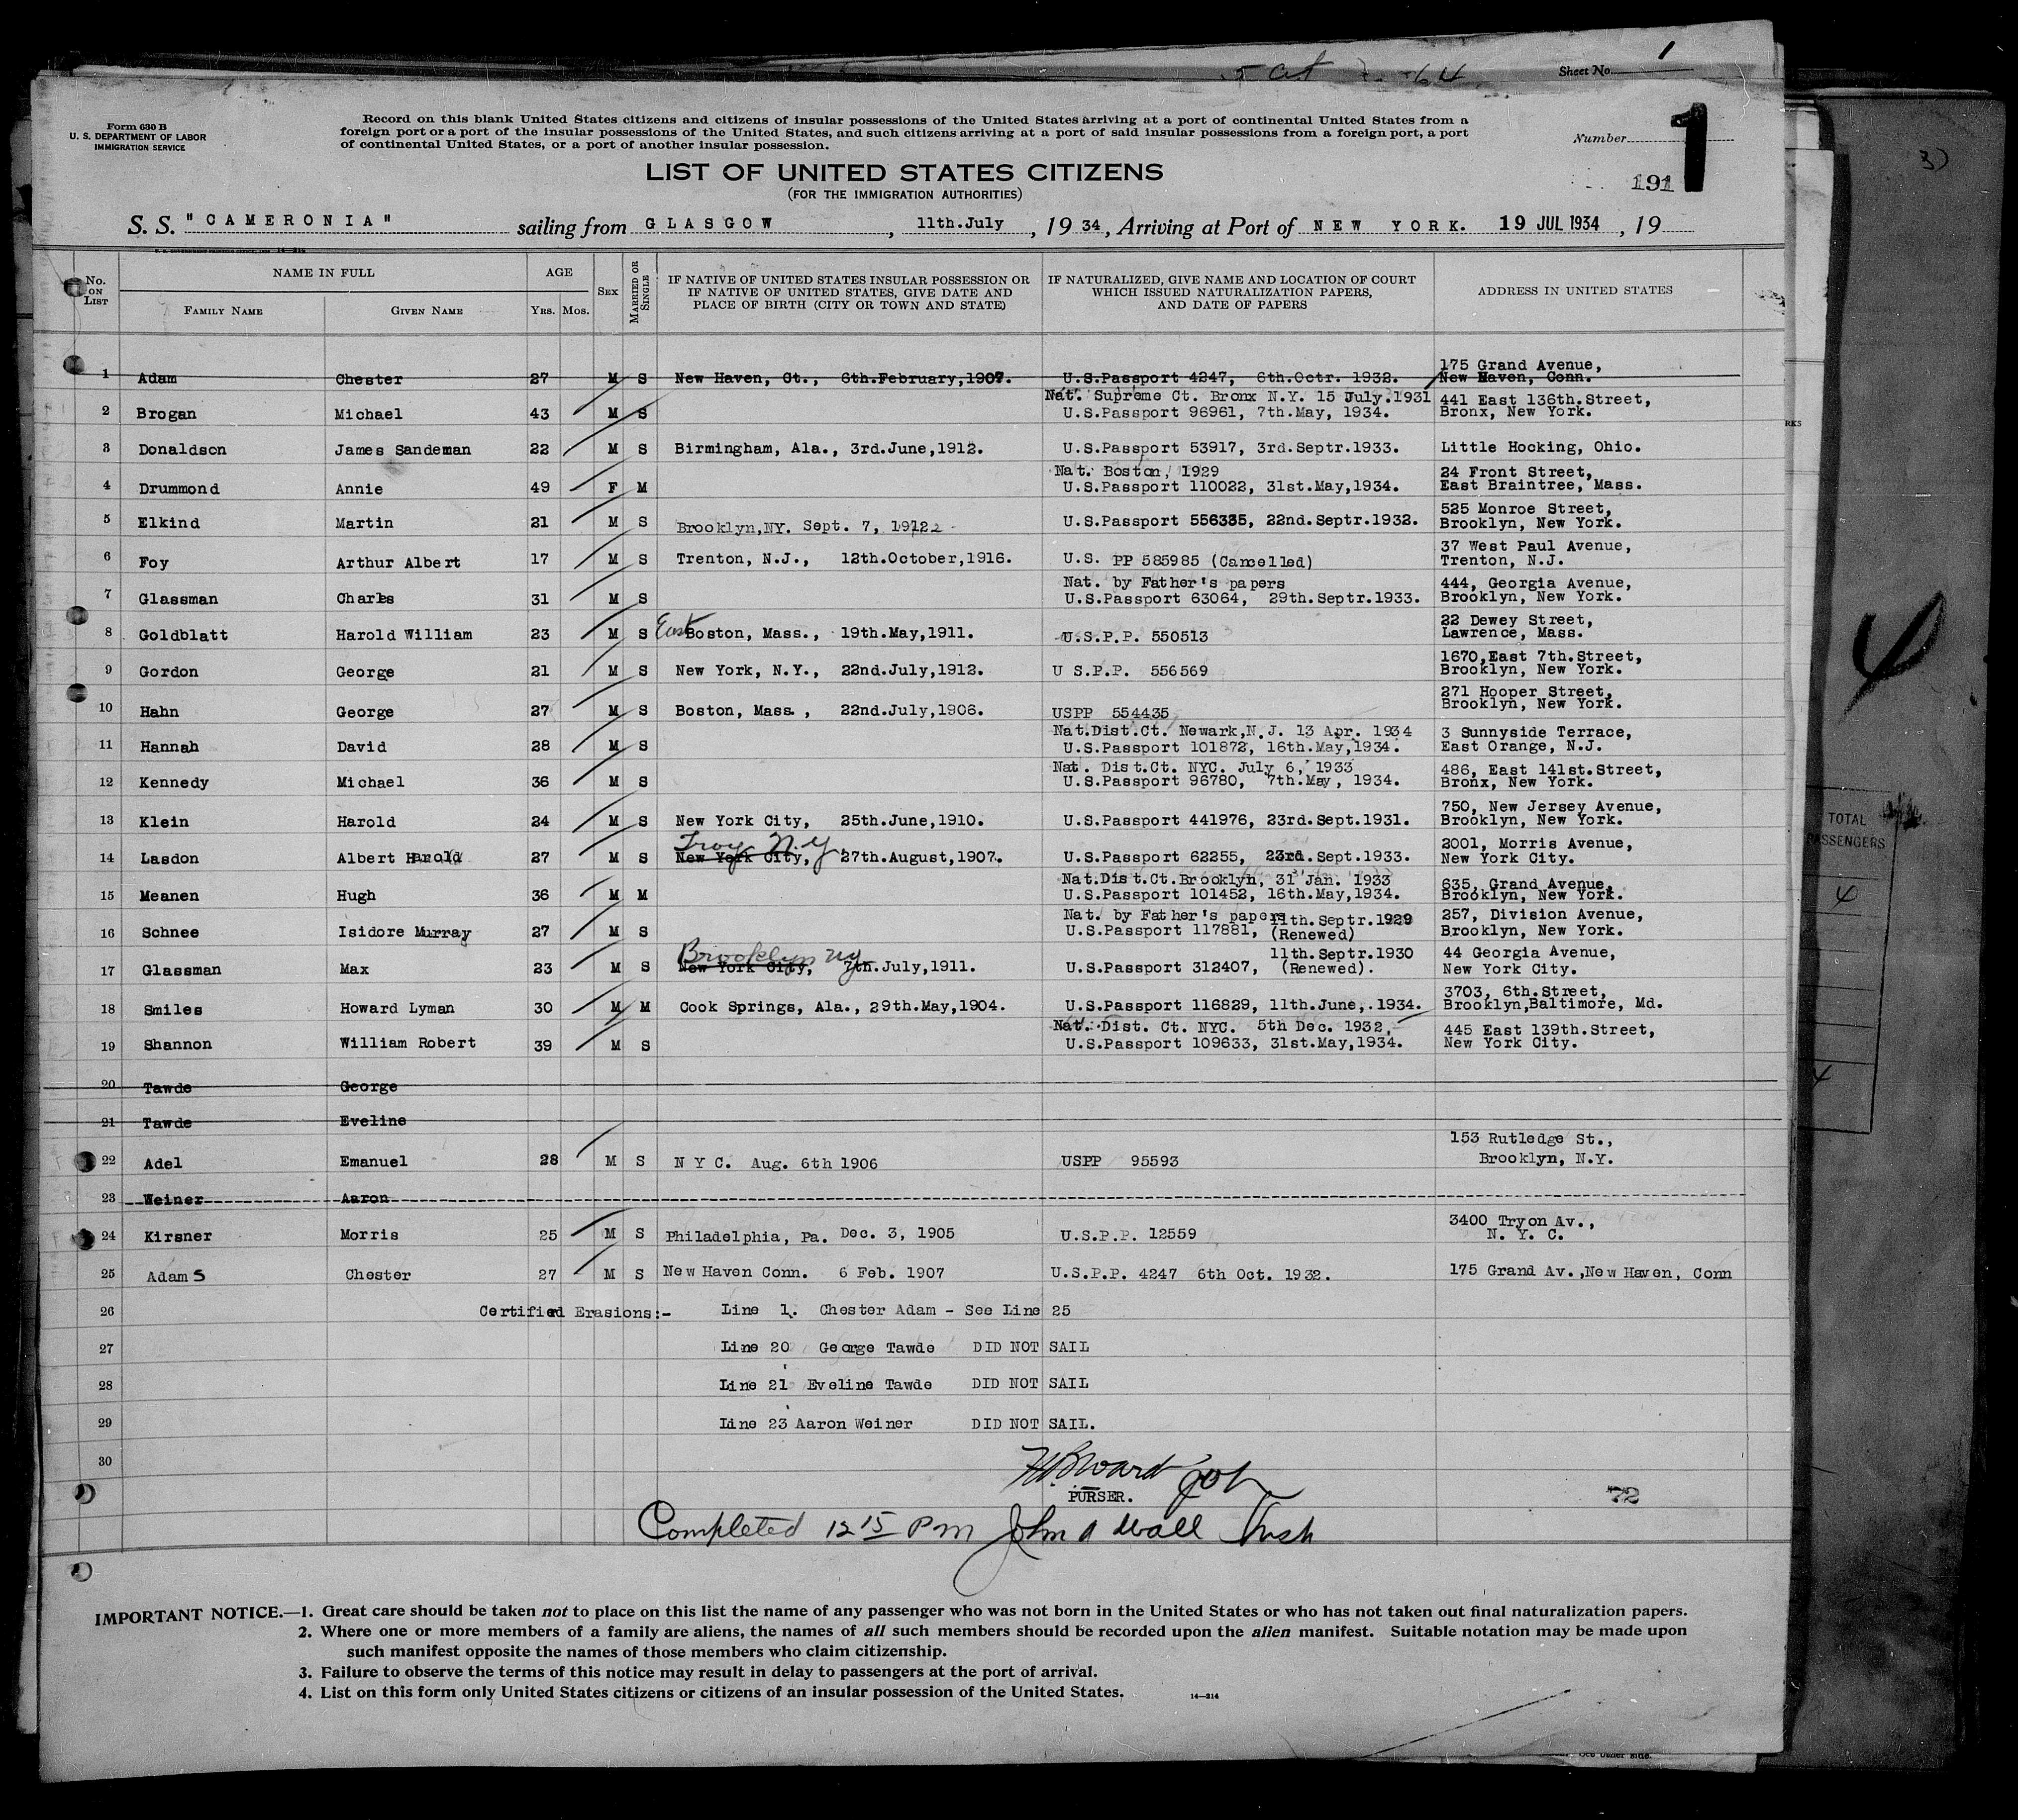 1
Sheet No.
Form 630 B
U. S. DEPARTMENT OF LABOR
IMMIGRATION SERVICE
Record on this blank United States citizens and citizens of insular possessions of the United States arriving at a port of continental United States from a
foreign port or a port of the insular possessions of the United States, and such citizens arriving at a port of said insular possessions from a foreign port, a port
of continental United States, or a port of another insular possession.
Number 1
LIST OF UNITED STATES CITIZENS
(FOR THE IMMIGRATION AUTHORITIES)
191
S. S. "CAMERONIA" sailing from GLASGOW, 11th.July, 19 34, Arriving at Port of NEW YORK. 19 JUL 1934, 19
No. ON LIST
NAME IN FULL
FAMILY NAME GIVEN NAME
AGE
YRS. MOS.
SEX
MARRIED OR SINGLE
IF NATIVE OF UNITED STATES INSULAR POSSESSION OR
IF NATIVE OF UNITED STATES, GIVE DATE AND
PLACE OF BIRTH (CITY OR TOWN AND STATE)
IF NATURALIZED, GIVE NAME AND LOCATION OF COURT
WHICH ISSUED NATURALIZATION PAPERS,
AND DATE OF PAPERS
ADDRESS IN UNITED STATES
175 Grand Avenue,
1 Adam Chester 27 M S New Haven, Ct., 6th.February,1907. U.S.Passport 4247, 6th.Octr. 1932. New Haven, Conn.
Nat. Supreme Ct. Bronx N.Y. 15 July.1931 441 East 136th.Street,
2 Brogan Michael 43 M S U.S.Passport 96961, 7th.May, 1934. Bronx, New York.
3 Donaldson James Sandeman 22 M S Birmingham, Ala., 3rd.June,1912. U.S.Passport 53917, 3rd.Septr.1933. Little Hocking, Ohio.
Nat. Boston, 1929 24 Front Street,
4 Drummond Annie 49 F M U.S.Passport 110022, 31st.May,1934. East Braintree, Mass.
525 Monroe Street,
5 Elkind Martin 21 M S Brooklyn,NY. Sept. 7, 1912 U.S.Passport 556335, 22nd.Septr.1932. Brooklyn, New York.
37 West Paul Avenue,
6 Foy Arthur Albert 17 M S Trenton, N.J., 12th.October,1916. U.S. PP 585985 (Cancelled) Trenton, N.J.
Nat. by Father's papers 444, Georgia Avenue,
7 Glassman Charles 31 M S U.S.Passport 63064, 29th.Septr.1933. Brooklyn, New York.
22 Dewey Street,
8 Goldblatt Harold William 23 M S East Boston, Mass., 19th.May,1911. U.S.P.P. 550513 Lawrence, Mass.
1670,East 7th.Street,
9 Gordon George 21 M S New York, N.Y., 22nd.July,1912. U S.P.P. 556569 Brooklyn, New York.
271 Hooper Street,
10 Hahn George 27 M S Boston, Mass., 22nd.July,1906. USPP 554435 Brooklyn, New York.
Nat.Dist.Ct. Newark,N.J. 13 Apr. 1934 3 Sunnyside Terrace,
11 Hannah David 28 M S U.S.Passport 101872, 16th.May,1934. East Orange, N.J.
Nat. Dist.Ct. NYC. July 6, 1933 486, East 141st.Street,
12 Kennedy Michael 36 M S U.S.Passport 96780, 7th.May, 1934. Bronx, New York.
750, New Jersey Avenue,
13 Klein Harold 24 M S New York City, 25th.June,1910. U.S.Passport 441976, 23rd.Sept.1931. Brooklyn, New York.
Troy N.Y. 2001, Morris Avenue,
14 Lasdon Albert Harold 27 M S New York City, 27th.August,1907. U.S.Passport 62255, 23rd.Sept.1933. New York City.
Nat.Dist.Ct.Brooklyn, 31 Jan. 1933 635, Grand Avenue,
15 Meanen Hugh 36 M M U.S.Passport 101452, 16th.May,1934. Brooklyn, New York.
Nat. by Father's papers 11th.Septr.1929 257, Division Avenue,
16 Schnee Isidore Murray 27 M S U.S.Passport 117881, (Renewed) Brooklyn, New York.
Brooklyn NY 11th.Septr.1930 44 Georgia Avenue,
17 Glassman Max 23 M S New York City, 7th.July,1911. U.S.Passport 312407, (Renewed). New York City.
3703, 6th.Street,
18 Smiles Howard Lyman 30 M M Cook Springs, Ala., 29th.May,1904. U.S.Passport 116829, 11th.June,.1934. Brooklyn,Baltimore, Md.
Nat. Dist. Ct. NYC. 5th Dec. 1932, 445 East 139th.Street,
19 Shannon William Robert 39 M S U.S.Passport 109633, 31st.May,1934. New York City.
20 Tawde George
21 Tawde Eveline
153 Rutledge St.,
22 Adel Emanuel 28 M S N Y C. Aug. 6th 1906 USPP 95593 Brooklyn, N.Y.
23 Weiner Aaron
3400 Tryon Av.,
24 Kirsner Morris 25 M S Philadelphia, Pa. Dec. 3, 1905 U.S.P.P. 12559 N. Y. C.
25 Adams Chester 27 M S New Haven Conn. 6 Feb. 1907 U.S.P.P. 4247 6th Oct. 1932. 175 Grand Av.,New Haven, Conn
26 Certified Erasions:- Line 1. Chester Adam - See Line 25
27 Line 20 George Tawde DID NOT SAIL
28 Line 21 Eveline Tawde DID NOT SAIL
29 Line 23 Aaron Weiner DID NOT SAIL.
30
PURSER.
72
Completed 12 15 Pm John A Wall Insp
IMPORTANT NOTICE.—1. Great care should be taken not to place on this list the name of any passenger who was not born in the United States or who has not taken out final naturalization papers.
2. Where one or more members of a family are aliens, the names of all such members should be recorded upon the alien manifest. Suitable notation may be made upon
such manifest opposite the names of those members who claim citizenship.
3. Failure to observe the terms of this notice may result in delay to passengers at the port of arrival.
4. List on this form only United States citizens or citizens of an insular possession of the United States.
14—214
TOTAL
PASSENGERS
4